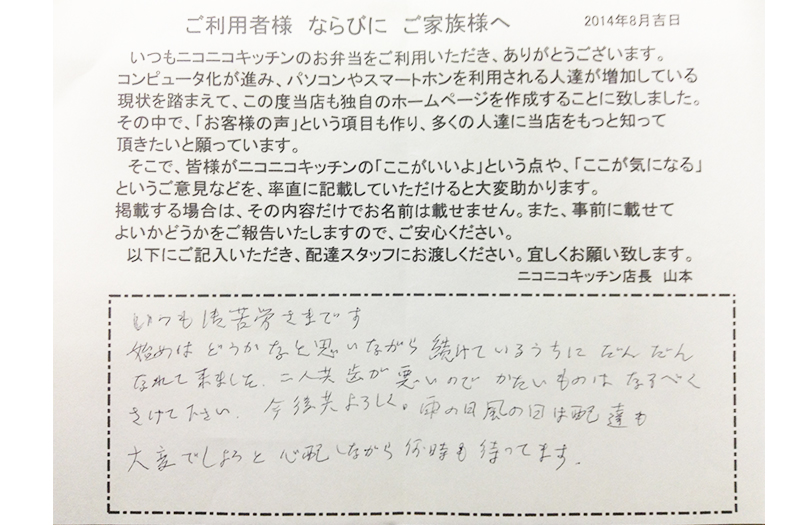 ご利用者様 ならびに ご家族様へ
2014年8月吉日
いつもニコニコキッチンのお弁当をご利用いただき、ありがとうございます。
コンピュータ化が進み、パソコンやスマートホンを利用される人達が増加している
現状を踏まえて、この度当店も独自のホームページを作成することに致しました。
その中で、「お客様の声」という項目も作り、多くの人達に当店をもっと知って
頂きたいと願っています。
そこで、皆様がニコニコキッチンの「ここがいいよ」という点や、「ここが気になる」
というご意見などを、率直に記載していただけると大変助かります。
掲載する場合は、その内容だけでお名前は載せません。また、事前に載せて
よいかどうかをご報告いたしますので、ご安心ください。
以下にご記入いただき、配達スタッフにお渡しください。宜しくお願い致します。
ニコニコキッチン店長 山本
いつも御苦労さまです
始めは どうかなと思いながら 続けているうちに だんだん
なれて来ました. 二人共歯が悪いので かたいものは なるべく
さけて下さい. 今後共よろしく。雨の日風の日は配達も
大変でしょうと 心配しながら 何時も待ってます.